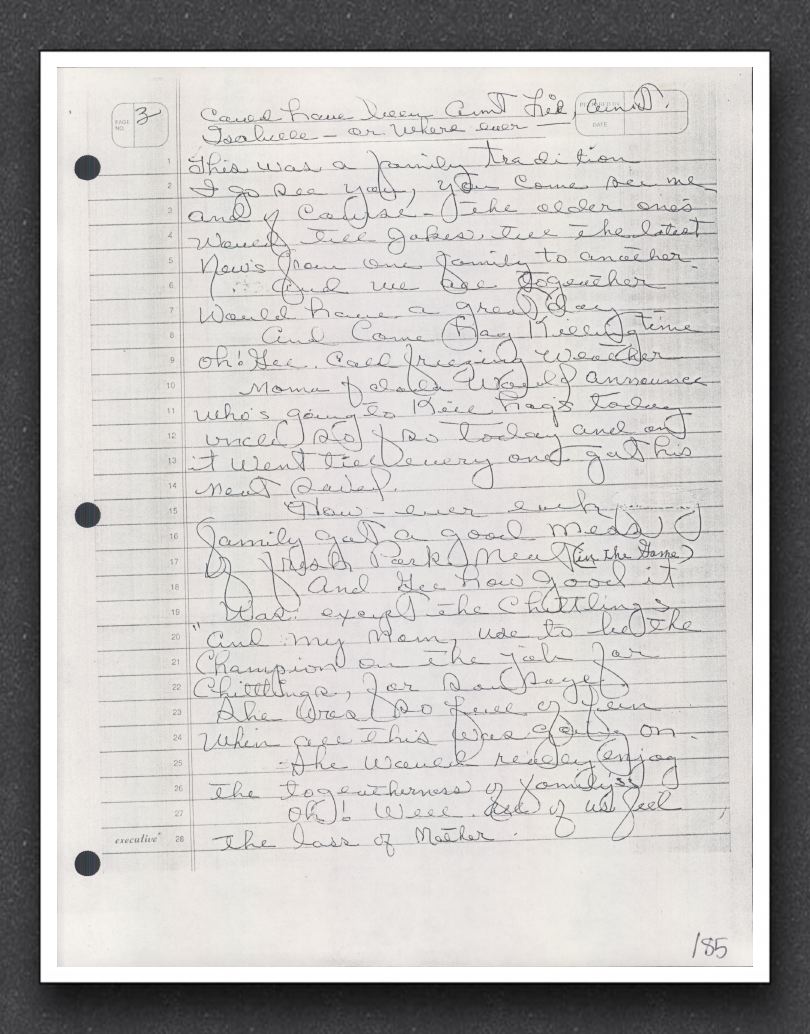 PAGE NO. 3
PREPARED BY
DATE
Could have been Aunt Lid, Aunt.
Isabelle - or where ever
1 This was a family tradition
2 I go see you, you come see me
3 and of course - the older ones
4 Would tell jokes, tell the latest
5 News from one family to another.
6 And we all together
7 Would have a great day
8 And Come Hog Killing time
9 Oh! Gee. Cold freezing Weather
10 Moma & dada Would announce
11 who's going to Kill hogs today
12 uncle so & so today and on
13 it went till every one got his
14 meat Saved.
15 How - ever each
16 family got a good mess
17 of fresh Pork Meat (in the Game)
18 And Gee how good it
19 Was. except the Chittlings
20 "And my Mom, use to be the
21 Champion on the job for
22 Chitttlings, for Sausage
23 She was so full of fun
24 When all this was going on.
25 She would really enjoy
26 the togetherness of family's
27 Oh! Well. all of us feel
executive 28 the loss of Mother.
/85